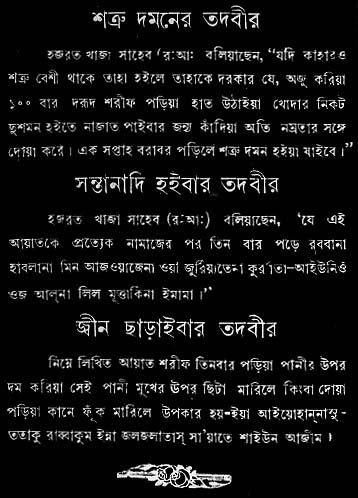 শত্রু দমনের তদবীর
হজরত খাজা সাহেব (র:আ: বলিয়াছেন, “যদি কাহারও
শত্রু বেশী থাকে তাহা হইলে তাহাকে দরকার যে, অজু করিয়া
১০০ বার দরূদ শরীফ পড়িয়া হাত উঠাইয়া খোদার নিকট
দুশমন হইতে নাজাত পাইবার জন্য কাঁদিয়া অতি নম্রতার সঙ্গে
দোয়া করে। এক সপ্তাহ বরাবর পড়িলে শত্রু দমন হইয়া যাইবে।”
সন্তানাদি হইবার তদবীর
হজরত খাজা সাহেব (র:আ:) বলিয়াছেন, ‘যে এই
আয়াতকে প্রত্যেক নামাজের পর তিন বার পড়ে রববানা
হাবলানা মিন আজওয়াজেনা ওয়া জুররিয়াতেনা কুররাতা-আইউনিওঁ
ওজ আলনা লিল মুত্তাকিনা ইমামা।”
জ্বীন ছাড়াইবার তদবীর
নিম্নে লিখিত আয়াত শরীফ তিনবার পড়িয়া পানীর উপর
দম করিয়া সেই পানী মুখের ঊপর ছিটা মারিলে কিংবা দোয়া
পড়িয়া কানে ফুঁক মারিলে উপকার হয়-ইয়া আইয়োহান্নাসু-
ততাকু রাব্বাকুম ইন্না জলজলাতাস্ সা'য়াতে শাইউন আজীম।